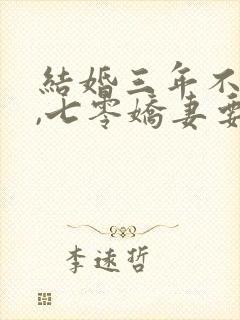 結婚三年不
,七零嬌妻要
李遠哲